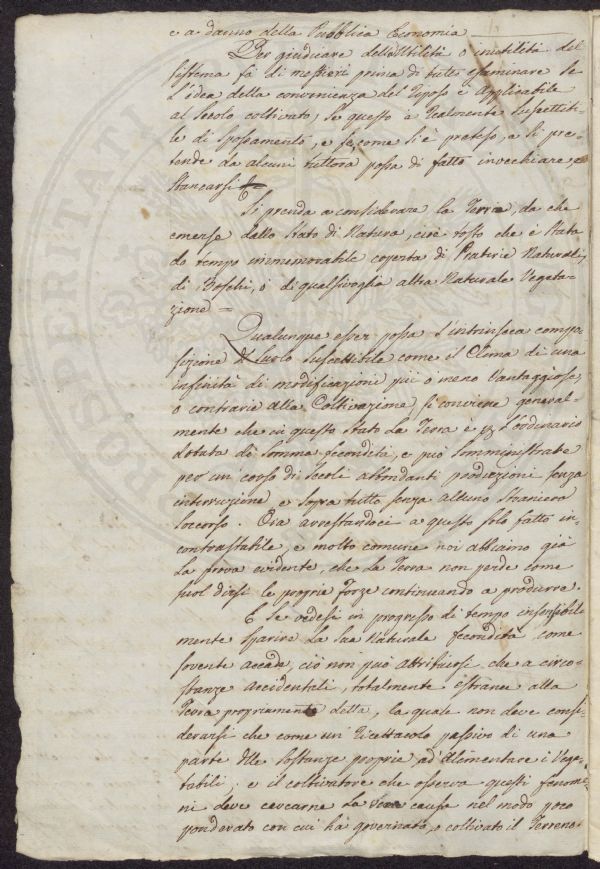 e a danno della Pubblica Economia
Per giudicare della Utilità o inutilità del
sistema fà di mestieri prima di tutto esaminare se
l'idea della convenienza del Riposo è applicabile
al Secolo coltivato, se questo è realmente suscettibi-
le di spossamento, e se come si è preteso, e si pre-
tende da alcuni tuttora possa di fatto invecchiare, e
stancarsi
Si prenda a considerare la Terra, da che
emerse dallo Stato di Natura, cioè tosto che è stata
da tempo immemorabile coperta di Praterie Naturali,
di Boschi, o di qualsivoglia altra Naturale Vegeta-
zione =
Qualunque esser possa l'intrinseca compo-
sizione di suolo suscettibile come il Clima di una
infinità di modificazioni più o meno vantaggiose,
o contrarie alla Coltivazione, si conviene general-
mente che in questo Stato la Terra è p l'ordinario
dotata di somma fecondità, e può somministrare
per un corso di Secoli abbondanti produzioni senza
interruzione e sopra tutto senza alcuno straniero
soccorso. Ora arrestandoci a questo solo fatto in-
contrastabile, e molto comune noi abbiamo già
la prova evidente, che la Terra non perde come
suol dirsi le proprie forze continuando a produrre.
E se vedesi in progresso di tempo insensibil-
mente sparire la sua Naturale fecondità, come
sovente accade, ciò non può attribuirsi che a circo-
stanze accidentali, totalmente estranee alla
Terra propriamente detta, la quale non deve consi-
derarsi che come un Ricettacolo passivo di una
parte delle sostanze proprie ad alimentare i Vege-
tabili, e il coltivatore che osserva questi fenome-
ni deve cercarne la vera causa nel modo poco
ponderato con cui hà governato, o coltivato il Terreno